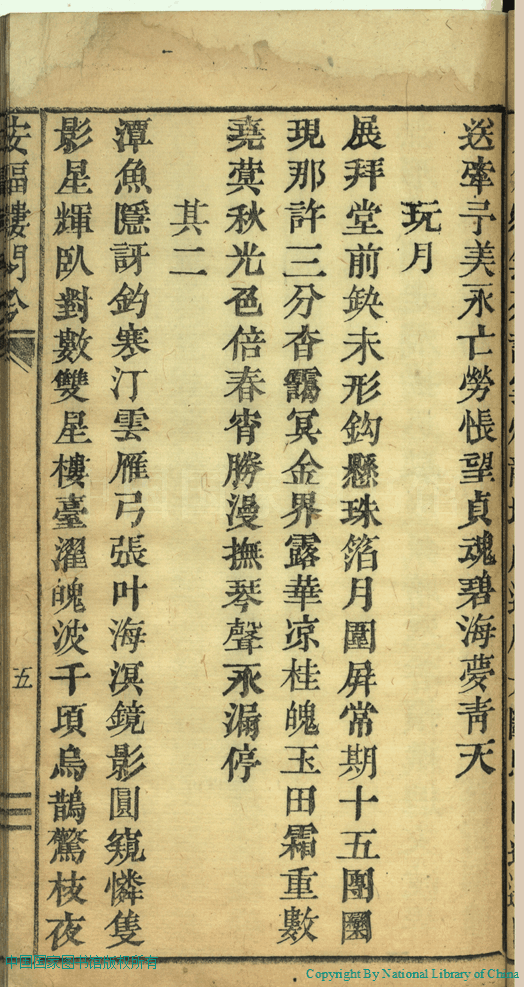 送牽予美永亡勞悵望貞魂碧海夢靑天
玩月
展拜堂前缺未形鈎懸珠箔月圍屏常期十五團圞
現那許三分杳靄冥金界露華凉桂魄玉田霜重數
堯蓂秋光色倍春宵勝漫撫琴聲永漏停
其二
潭魚隱訝釣寒汀雲雁弓張叶海溟鏡影圓窺憐隻
影星輝臥對數雙星樓臺濯魄波千頃烏鵲驚枝夜
五
中国国家图书馆版权所有
Copyright By National Library of China